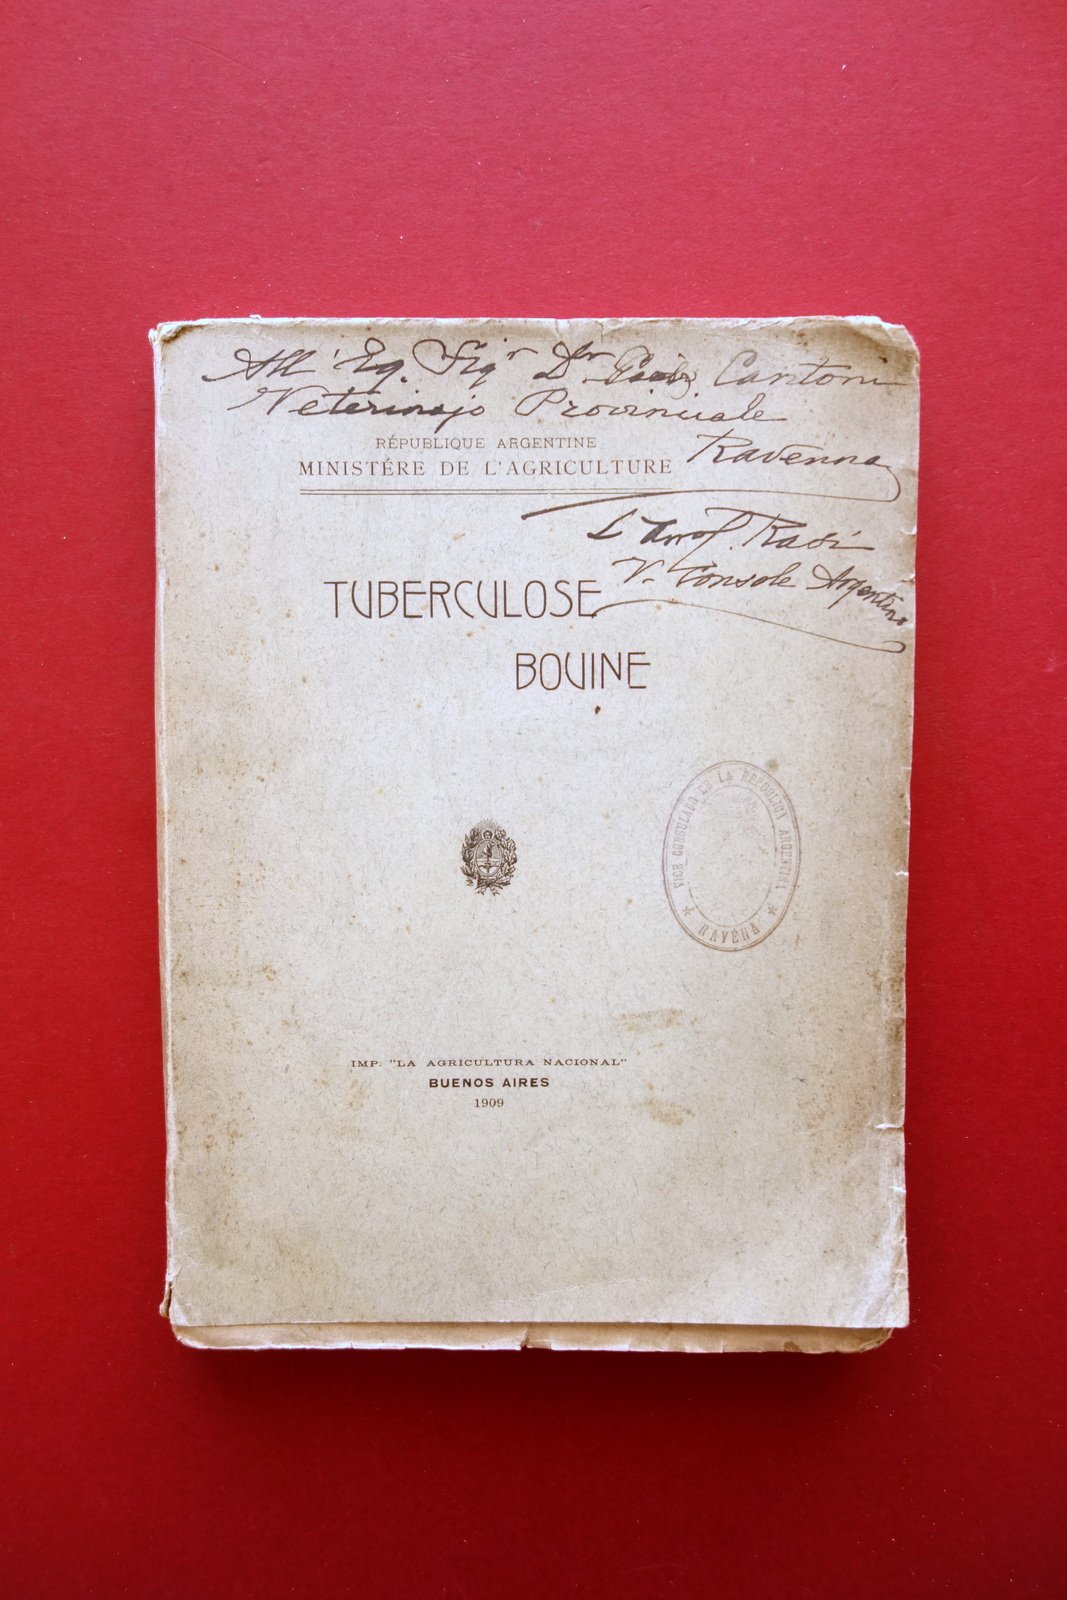 All' Eg. Sigr Dr Cantoni
Veterinajo Provinciale
Ravenna
RÉPUBLIQUE ARGENTINE
MINISTÉRE DE L'AGRICULTURE
V. Console Argentino
TUBERCULOSE
BOVINE
VICE CONSULADO DE LA REPUBLICA ARGENTINA
RAVENA
IMP. "LA AGRICULTURA NACIONAL"
BUENOS AIRES
1909